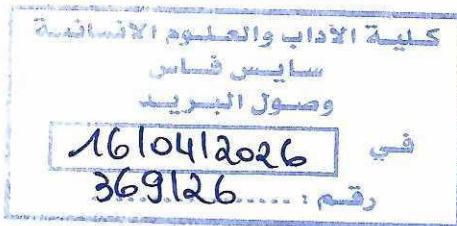 كلية الآداب والعلوم الانسانية
سايس فاس
وصول البريد
في 16/04/2026
رقم : 369/26